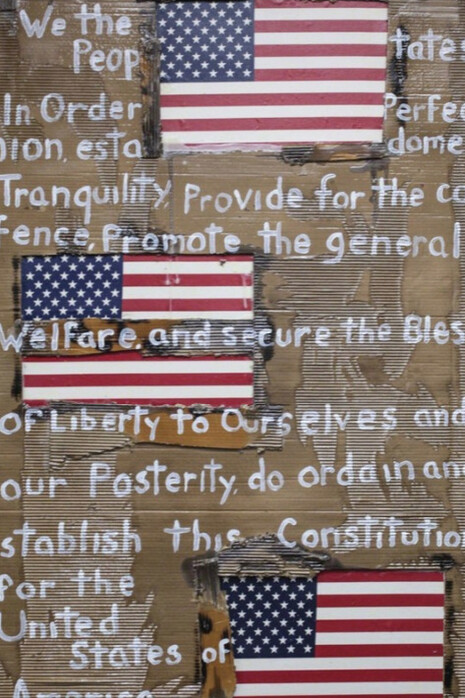 We the tates
Peop
In Order Perfec
nion, esta dome
Tranquility Provide for the co
fence, Promote the general
Welfare, and secure the Bles
of Liberty to Ourselves and
our Posterity, do ordain an
establish this Constitution
for the
United
States of
America